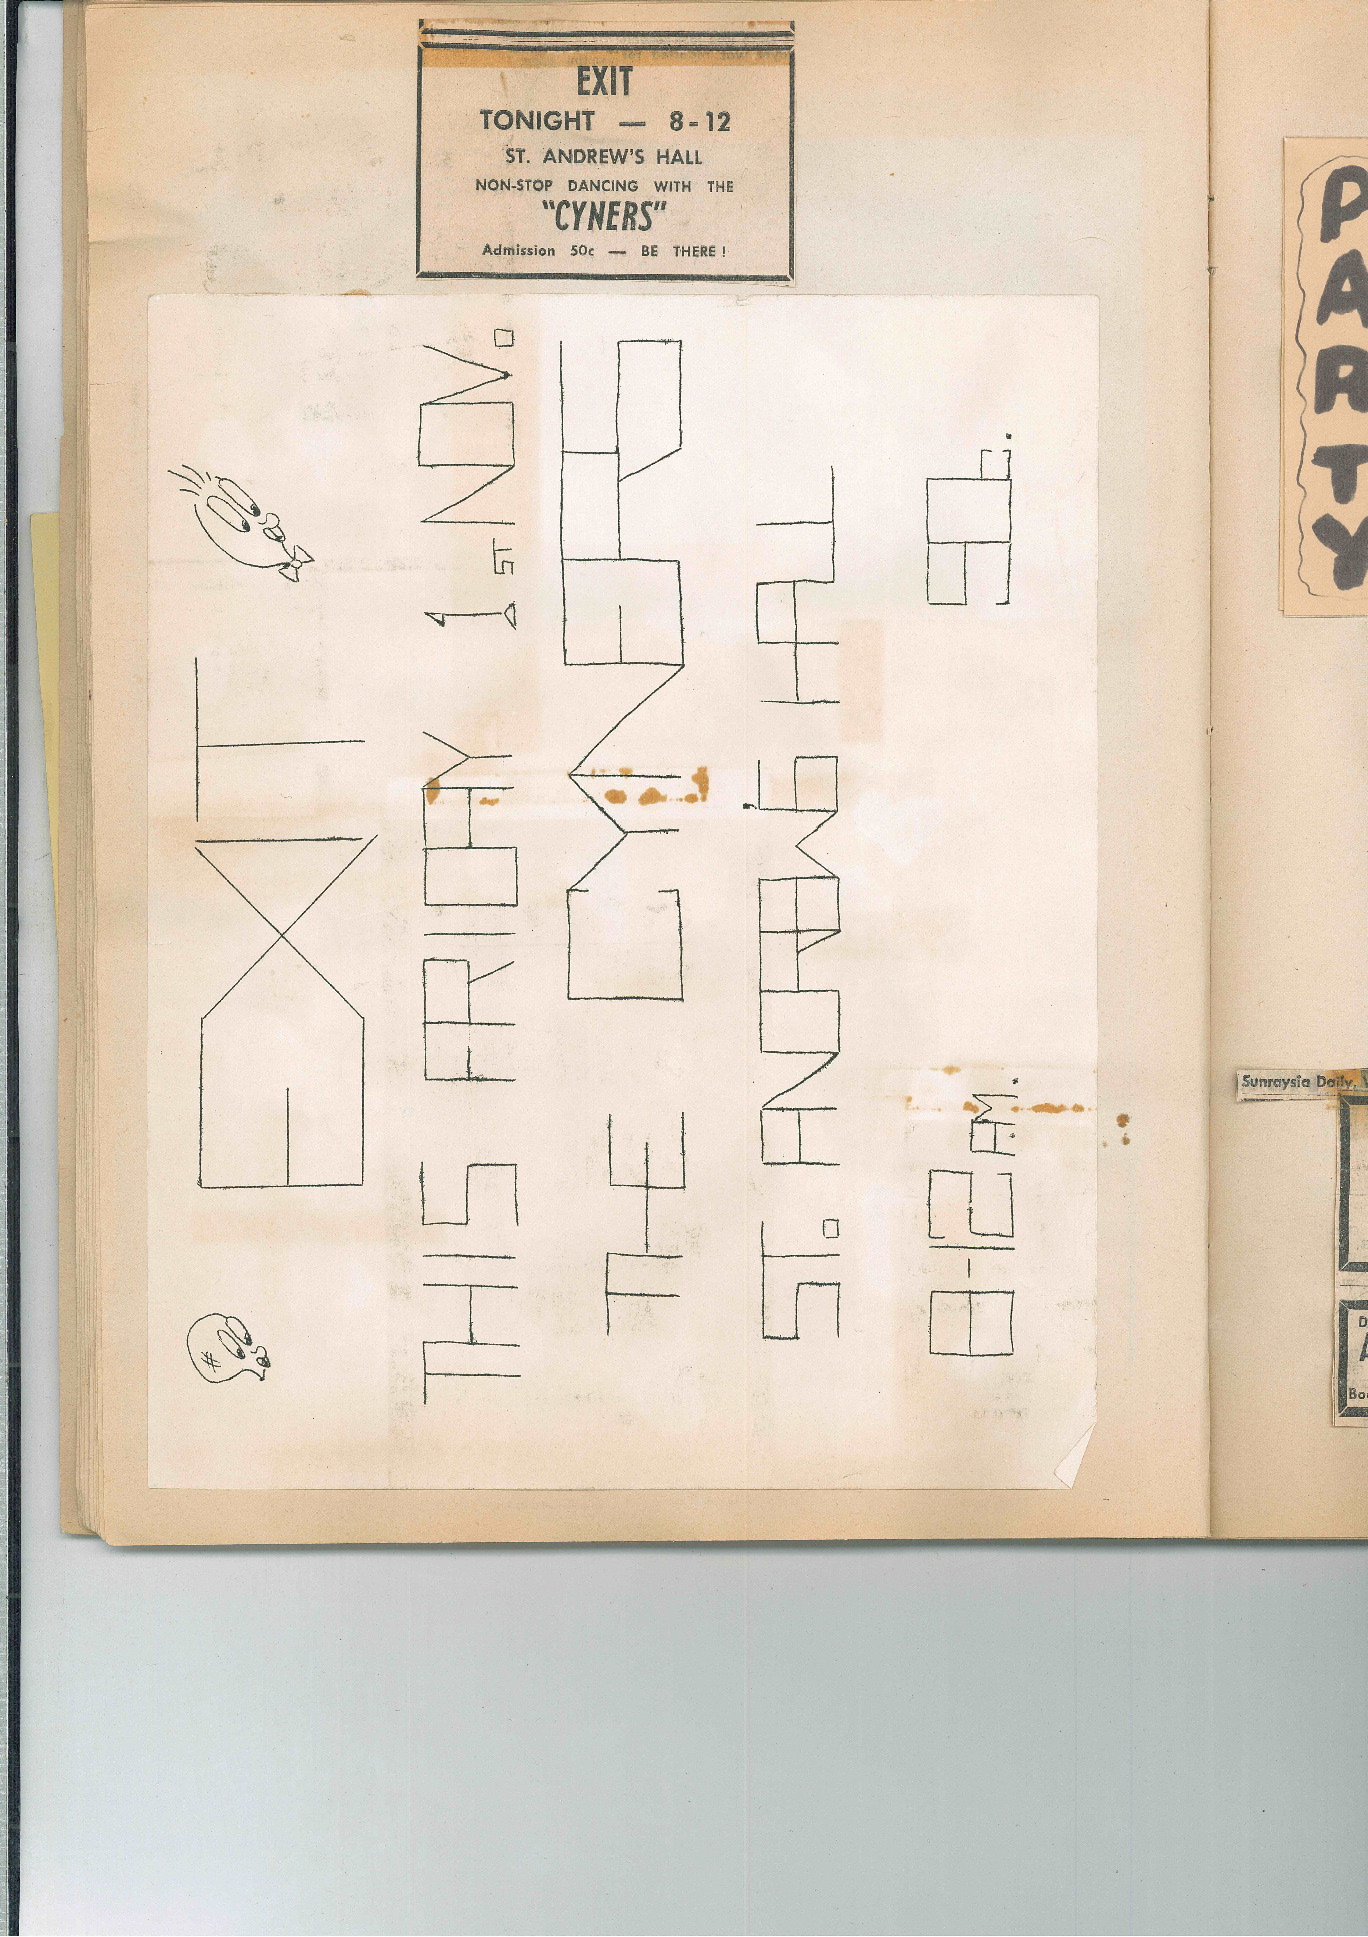 EXIT
TONIGHT — 8-12
ST. ANDREW'S HALL
NON-STOP DANCING WITH THE
"CYNERS"
Admission 50c — BE THERE!
EXIT
THIS FRIDAY 1ST NOV.
THE CYNERS
ST. ANDREW'S HALL
8-12 AM. 50c.
PARTY
Sunraysia Daily,